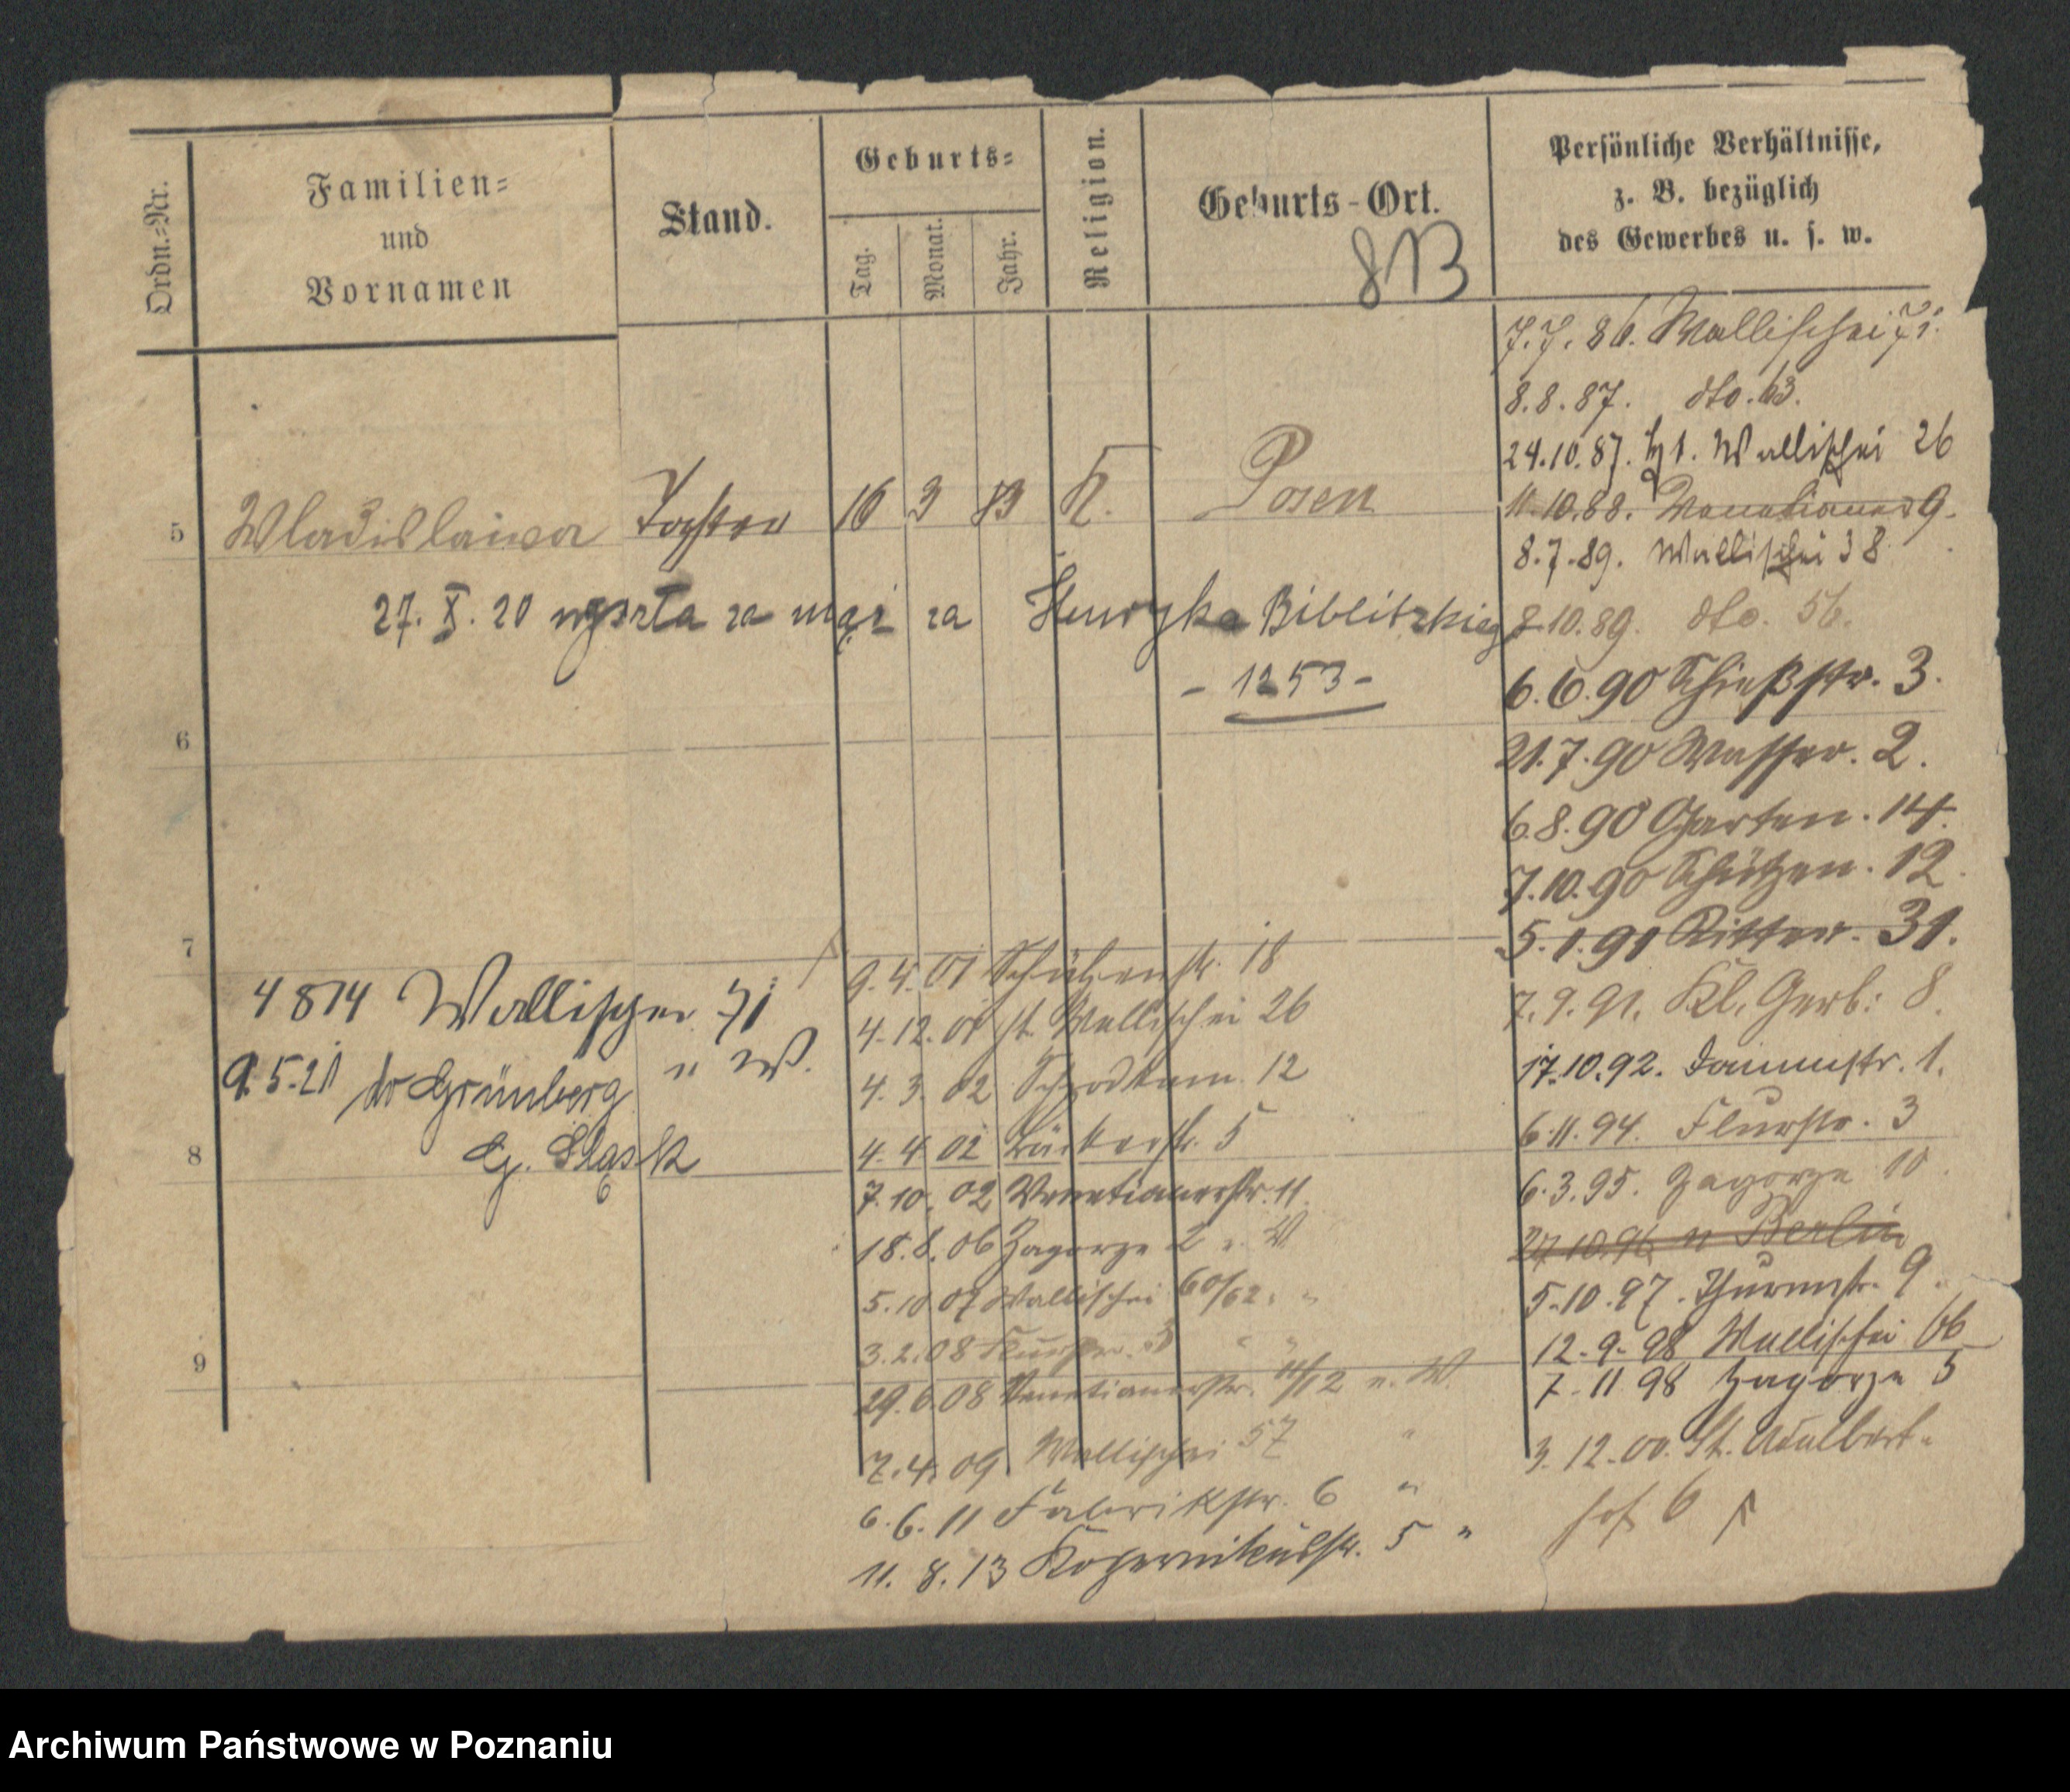 Ordn.-Nr.
Familien-
und
Vornamen
Stand.
Geburts-
Tag.
Monat.
Jahr.
Religion.
Geburts-Ort.
8B
Persönliche Verhältnisse,
z. B. bezüglich
des Gewerbes u. s. w.
5 Wladislaiwa Tochter 16 3 83 K. Posen
27. X. 20 wyszła za mąż za Henryka Biblitzkieg
- 1253 -
6
7
8
9
7.7.86. Wallischei 71.
8.8.87. dto. 63.
24.10.87. Wallischei 26
11.10.88. Venetianer 9.
8.7.89. Wallischei 38
8.10.89. dto. 56.
6.6.90 Schießstr. 3.
21.7.90 Wasser. 2.
6.8.90 Garten. 14.
7.10.90 Schützen. 12
5.1.91 Ritter. 31.
7.9.91. Kl. Gerb: 8.
17.10.92. Dammstr. 1.
6.11.94. Flurstr. 3
6.3.95. Zagorze 10.
27.10.96 n Berlin
5.10.97. Thurmstr. 9.
12.9.98 Wallischei 66
7.11 98 Zagorze 5
3.12.00. St. Adalbert-
hof 6
4 8 14 Wallischei 71
9.5.21 do Grünberg " W.
G. Śląsk
9.4.01 Schützenstr. 18
4.12.01 Wallischei 26
4.3.02 12
4.4 02 Bäckerstr. 5
7.10.02 Venetianerstr. 11.
18.8.06 Zagorze 2 n. W.
5.10.07 Wallischei 60/62. "
3.2.08 Flurstr. 3 " "
29.6.08 Venetianerstr. 11/12 n. W.
7.4.09. Wallischei 57 "
6.6.11 Fabrikstr. 6 "
11.8.13 Kopernikusstr. 5 "
Archiwum Państwowe w Poznaniu